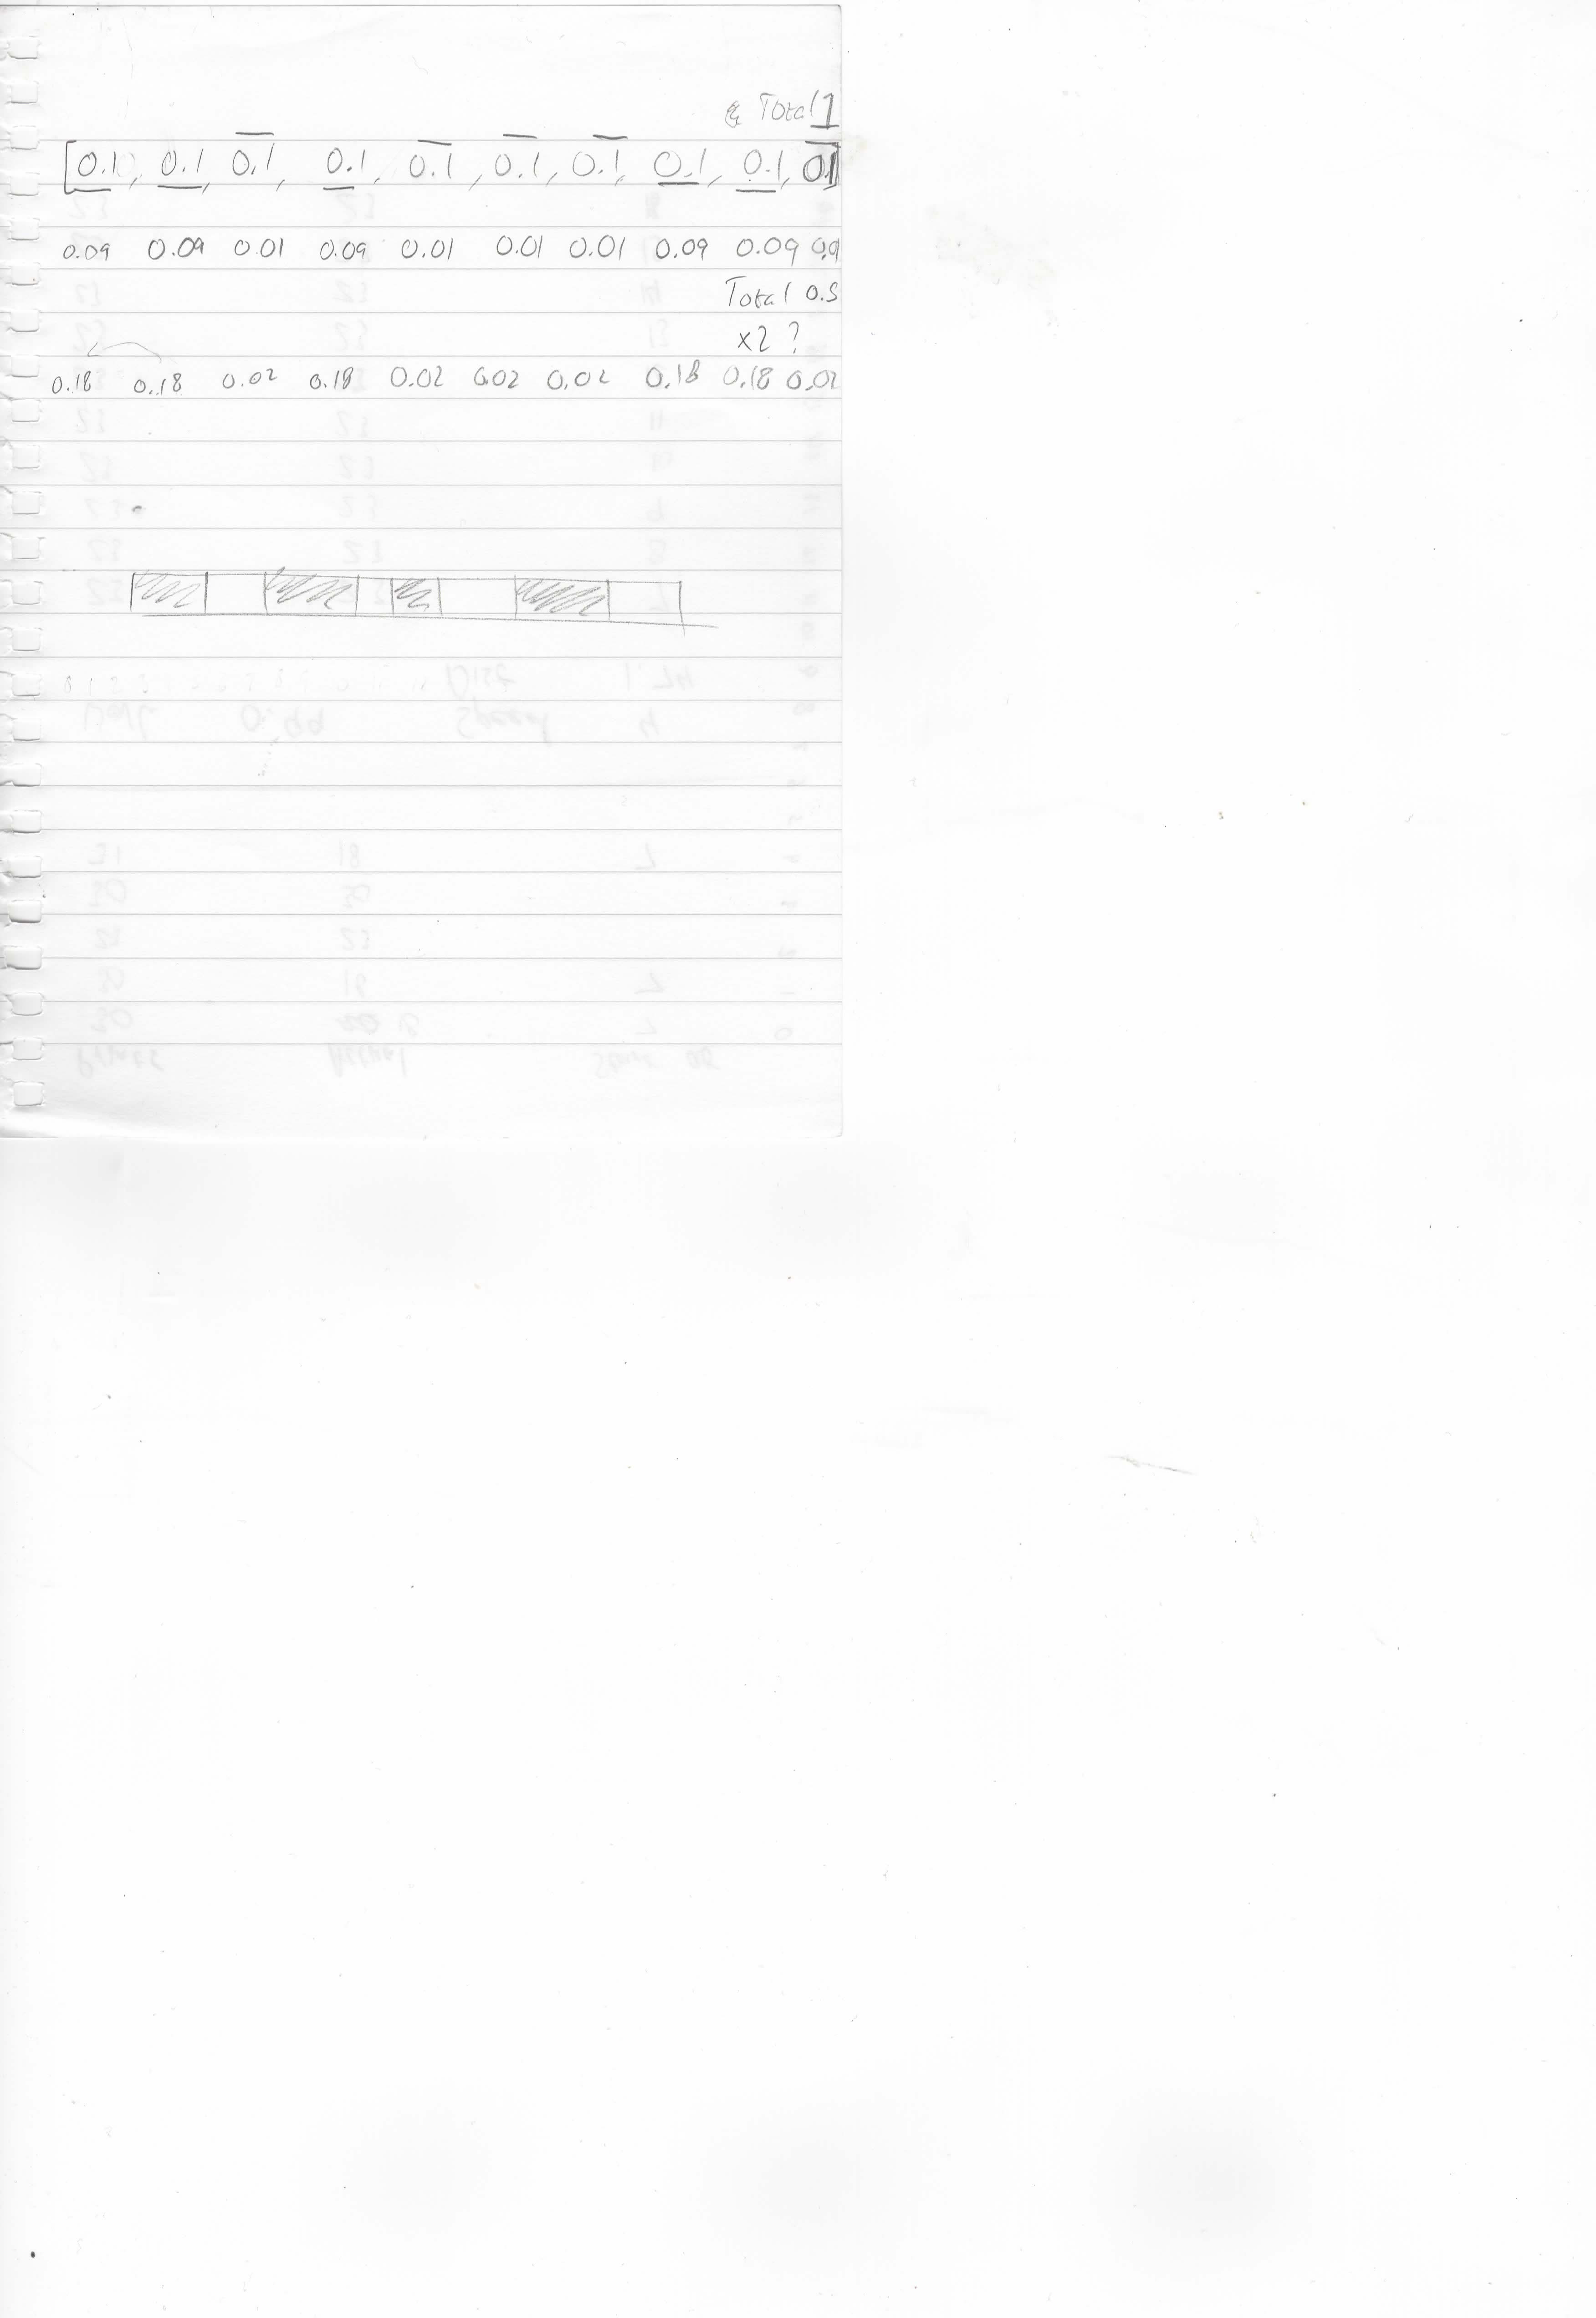 Total 1
[0.1, 0.1, 0.1, 0.1, 0.1, 0.1, 0.1, 0.1, 0.1, 0.1]
0.09 0.09 0.01 0.09 0.01 0.01 0.01 0.09 0.09 0.01
Total 0.5
x2 ?
0.18 0.18 0.02 0.18 0.02 0.02 0.02 0.18 0.18 0.02